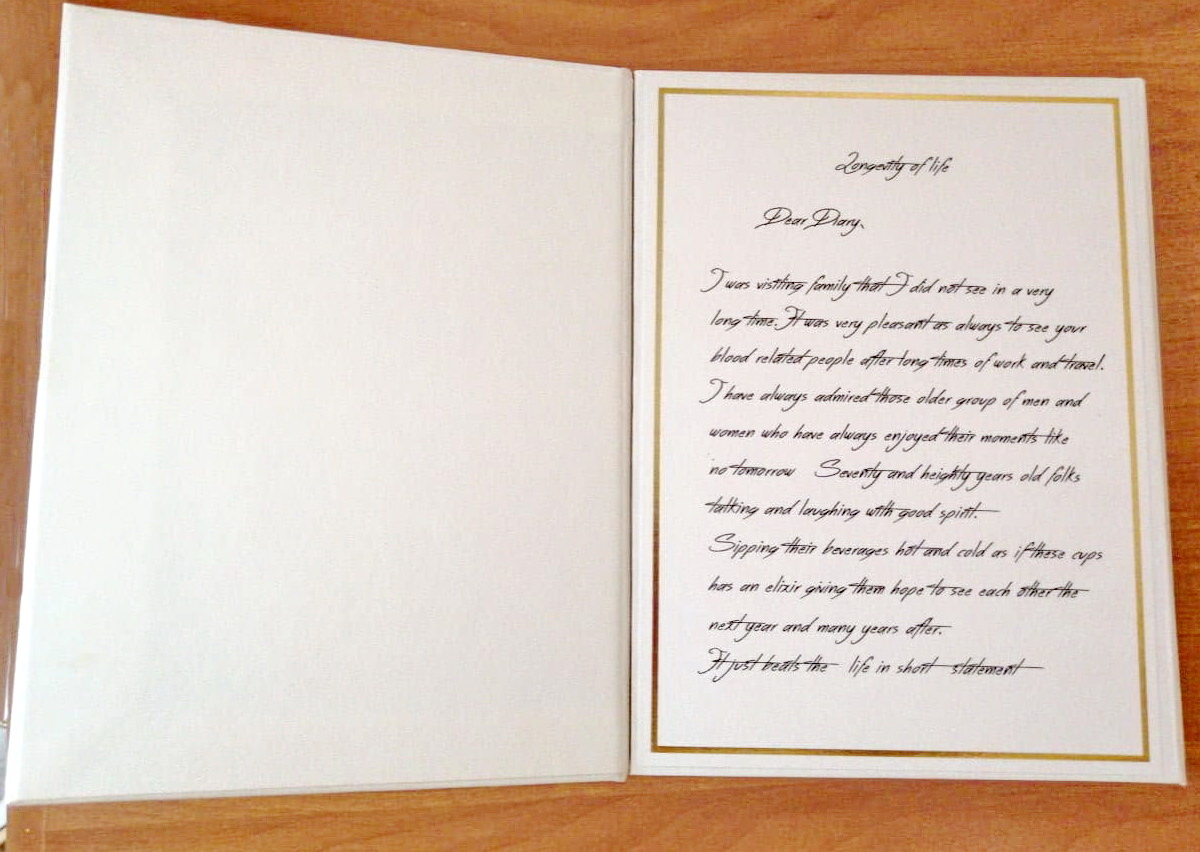 Longevity of life
Dear Diary,
I was visiting family that I did not see in a very
long time. It was very pleasant as always to see your
blood related people after long times of work and travel.
I have always admired those older group of men and
women who have always enjoyed their moments like
no tomorrow Seventy and heighty years old folks
talking and laughing with good spirit.
Sipping their beverages hot and cold as if these cups
has an elixir giving them hope to see each other the
next year and many years after.
It just beats the life in short statement